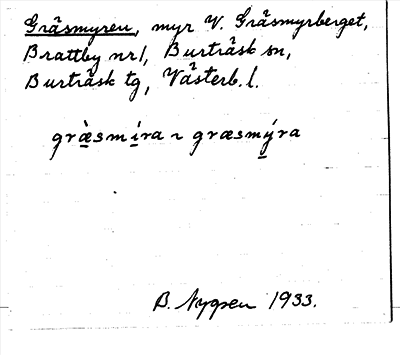 Gräsmyren, myr V. Gräsmyrberget,
Brattby nr 1, Burträsk sn,
Burträsk tg, Västerb. l.
græ̀smíra ~ græsmýra
B. Nygren 1933.